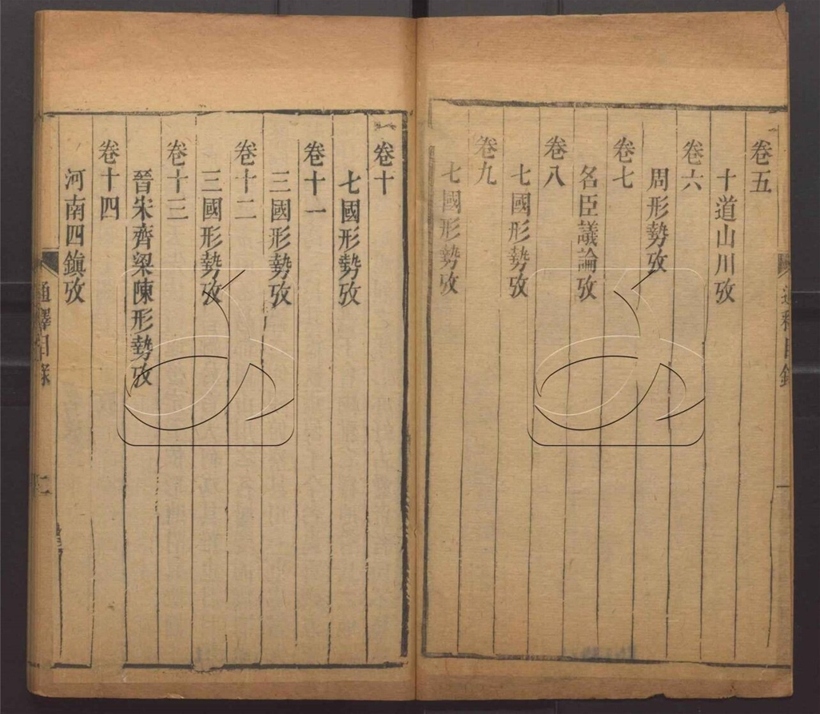 卷五
十道山川攷
卷六
周形勢攷
卷七
名臣議論攷
卷八
七國形勢攷
卷九
七國形勢攷
卷十
七國形勢攷
卷十一
三國形勢攷
卷十二
三國形勢攷
卷十三
晉宋齊梁陳形勢攷
卷十四
河南四鎮攷
通釋目錄
二